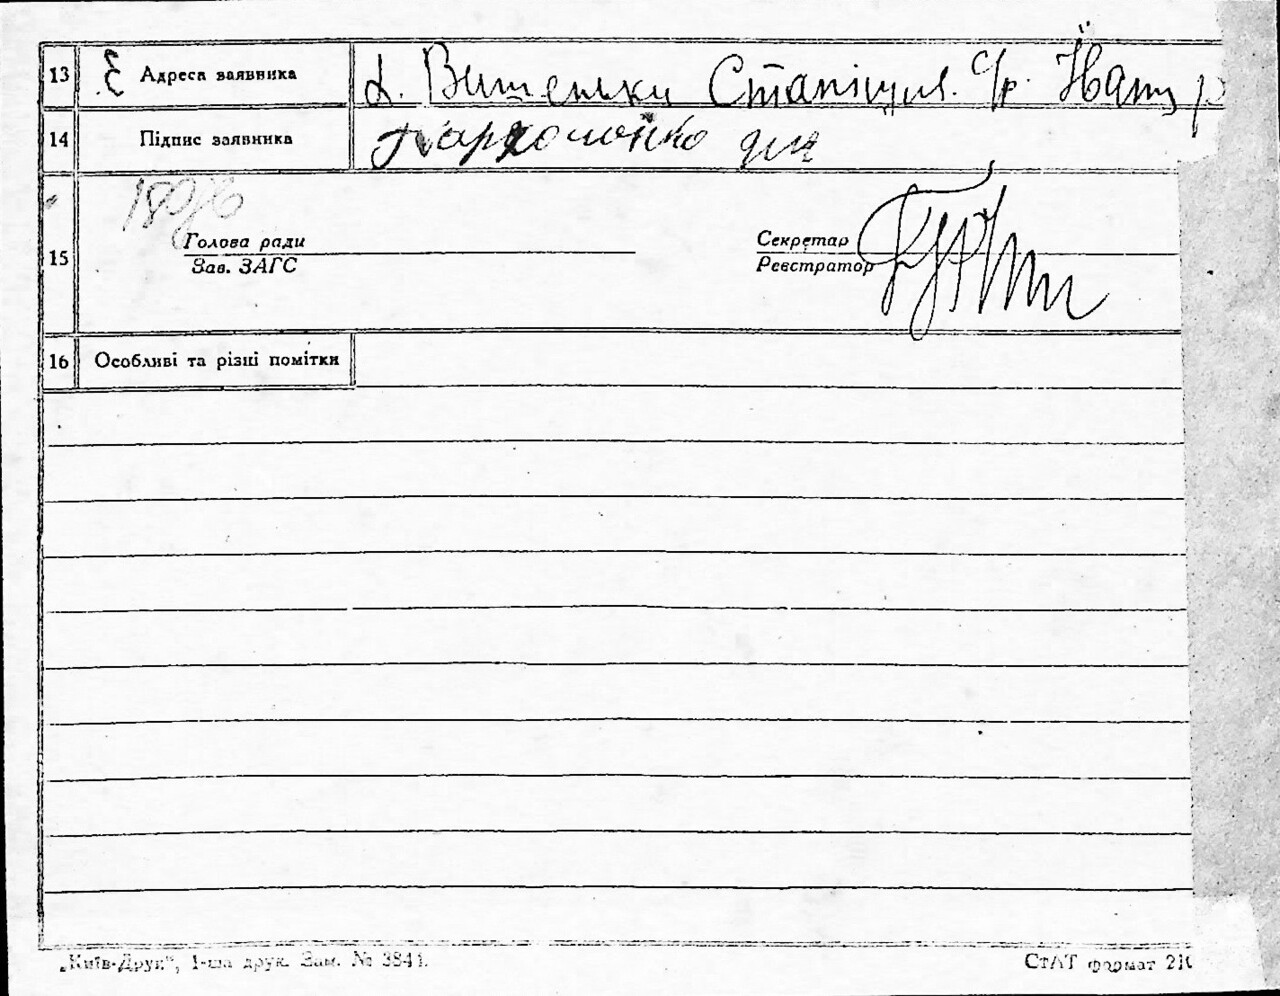 13 Адреса заявника х. Вишеньки Стапіуця. с/р.
14 Підпис заявника Пархоменко
15
Голова ради Секретар
Зав. ЗАГС Реєстратор
16 Особливі та різні помітки
„Київ-Друк“, 1-ша друк. Зам. № 3841.
СтАТ формат 210